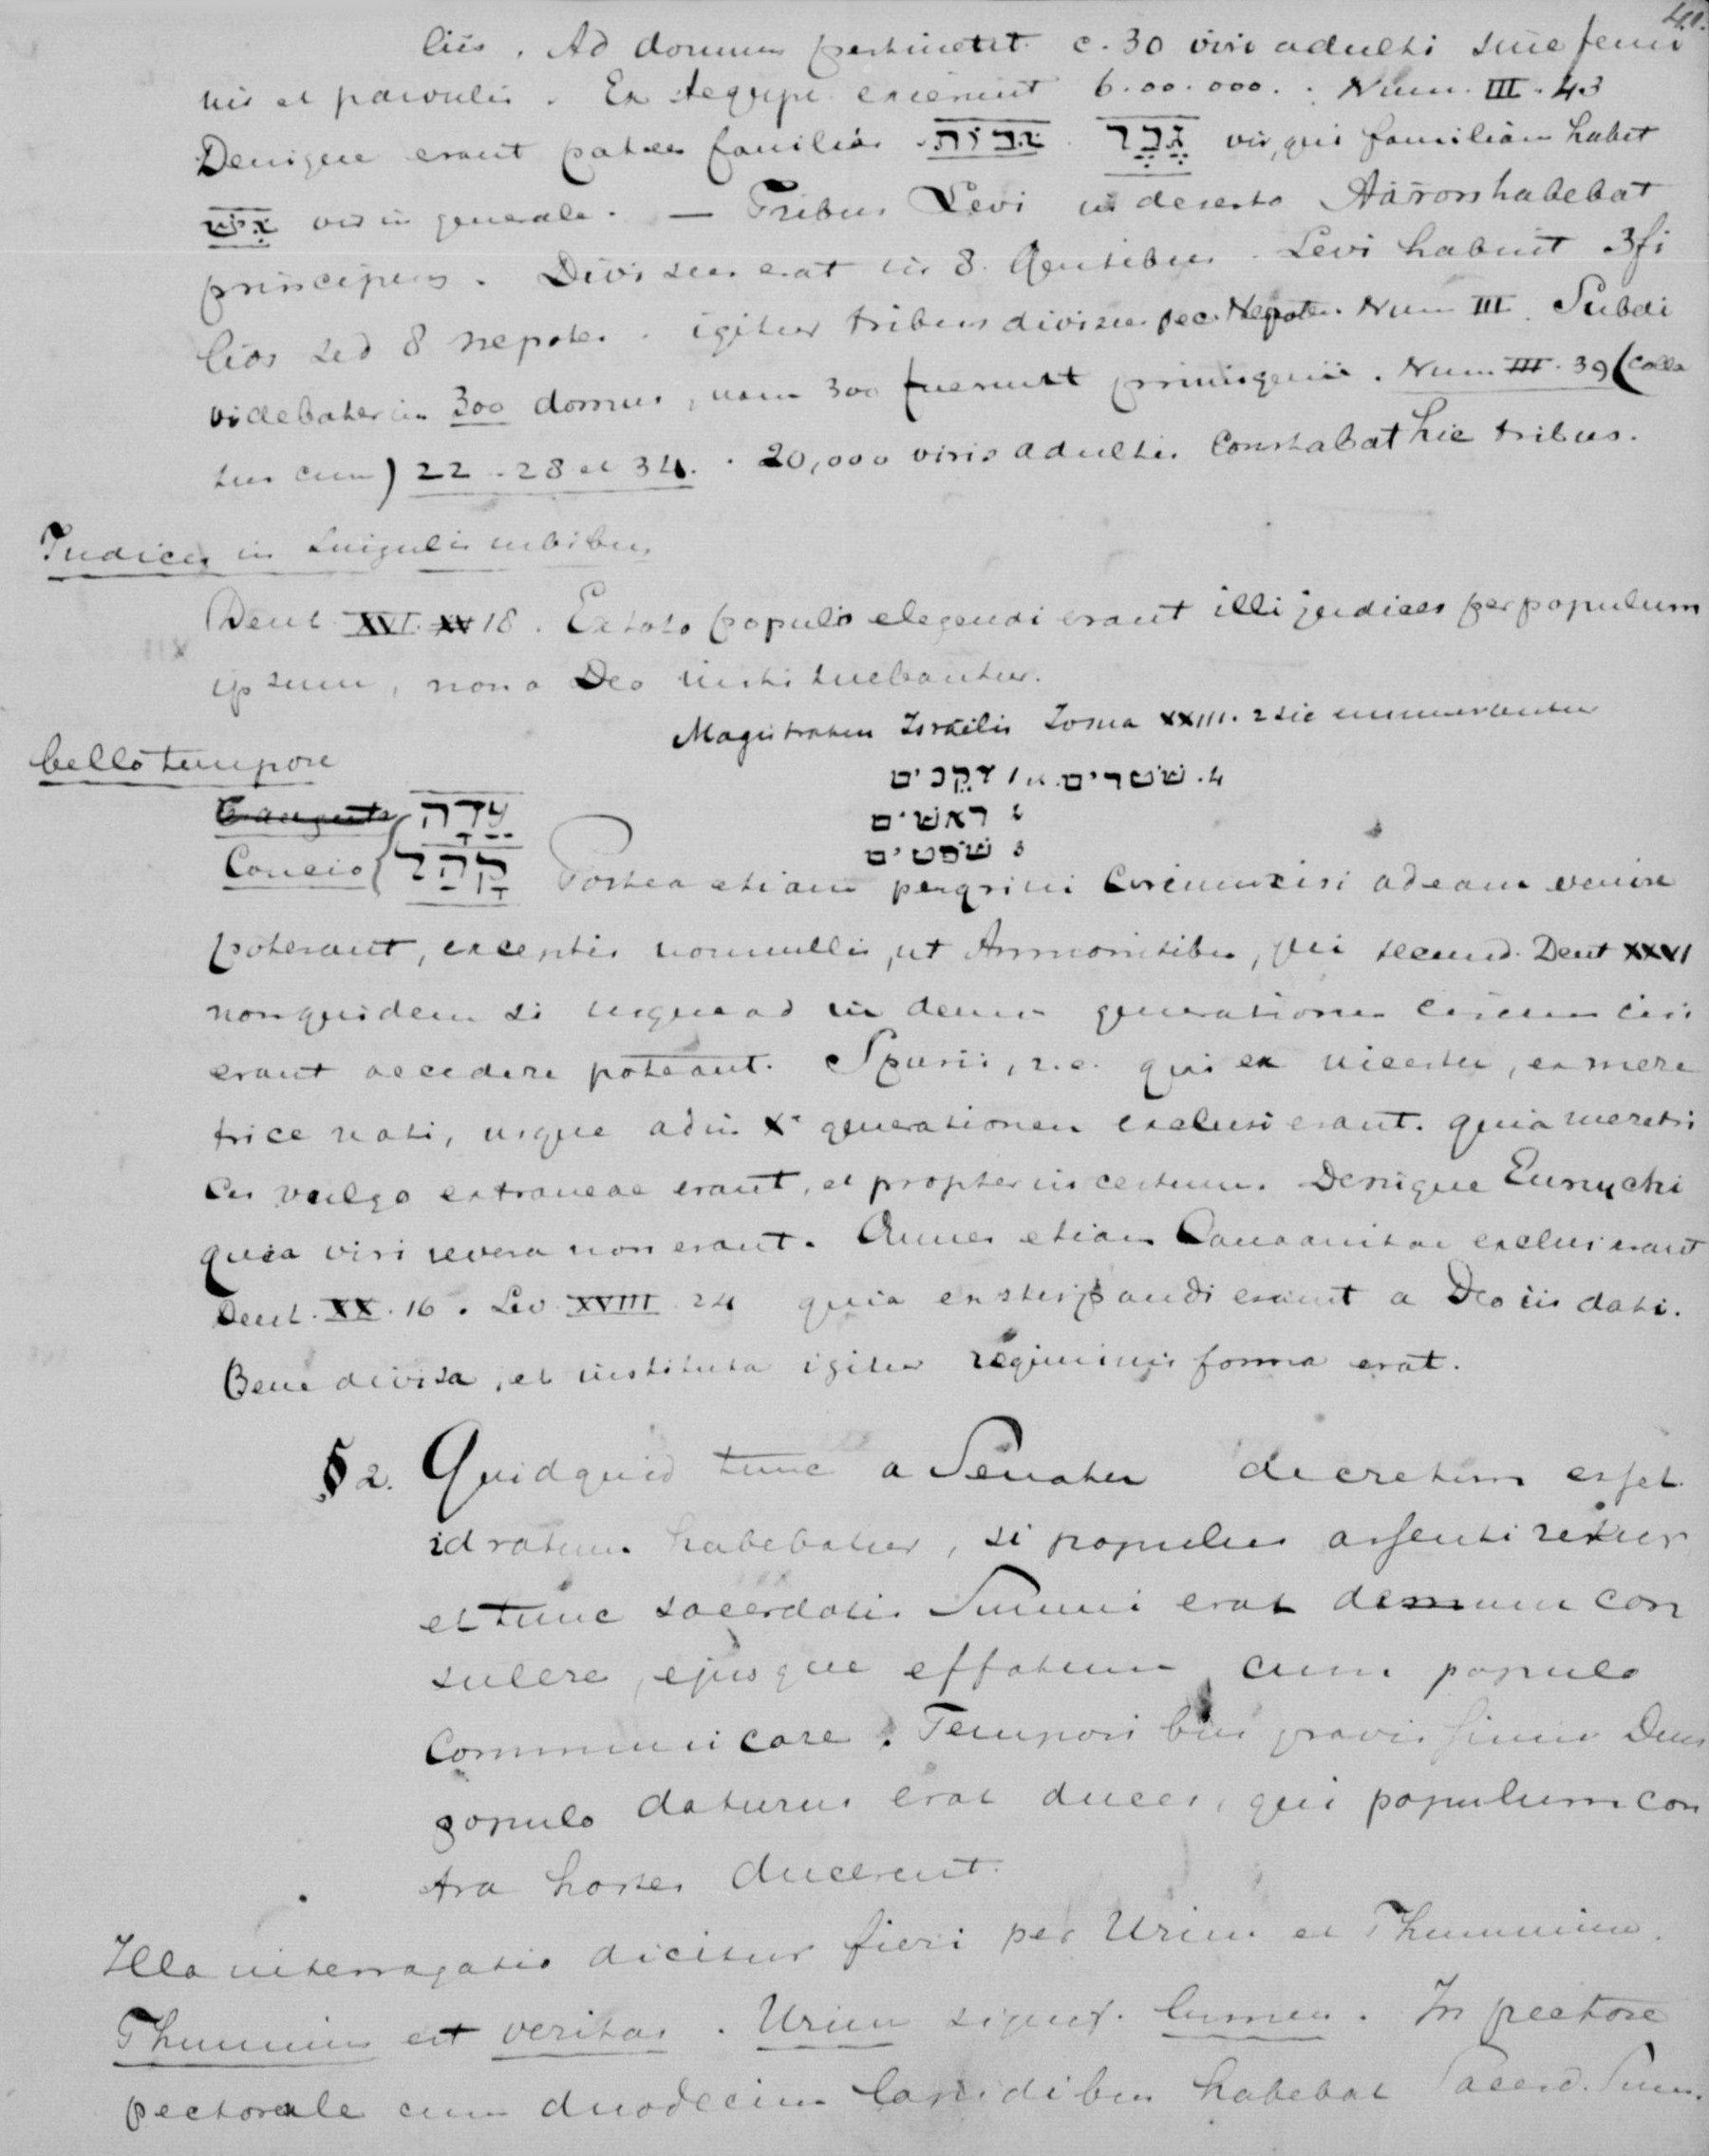 40.
liis. Ad domum pertinebat c. 30 viri adulti sine femi
nis et parvulis. Ex Aegypt. exierunt 6.00.000. Num. III. 43
Denique erant patres familias אבות. גֶּבֶר vir, qui familiam habet
אִישׁ vir in generale. — Tribus Levi in deserto Aäron habebat
principem. Divisus erat in 8. Gentibus. Levi habuit 3 fi
lios sed 8 nepotes. igitur tribus divisus sec. Nepotes. Num III. Subdi
videbatur in 300 domus, nam 300 fuerunt primigenii. Num III. 39 (Colla
tus cum) 22. 28 et 34. 20,000 viris adultis Constabat hic tribus.
Judices in singulis urbibus
Deut XVI. XV 18. Ex toto populo elegendi erant illi judices per populum
ipsum, non a Deo instituebantur.
Magistratus Israëlis Josua XXIII. 2 sic enumerantur
bello tempore
4. שֹׁטְרִים 1 זְקֵנִים
2 ראשׁים
3 שׁפטים
עֵדָה
Concio { קָהָל Postea etiam peregrini Circumcisi ad eam venire
poterant, exceptis nonnullis, ut Ammonitibus, qui secund. Deut XXVI
non quidem si usque ad in decem generationem circumcisi
erant accedere poterant. Spurii, i.e. qui ex incestu, ex mere
trice nati, usque ad in X generationem exclusi erant. quia meretri
ces vulgo extraneae erant, et propter incestum. Denique Eunuchi
quia viri revera non erant. Omnes etiam Canaanitae exclusi erant
Deut. XX. 16. Lev XVIII 24 quia exstirpandi erant a Deo iis dati.
Bene divisa, et instituta igitur regiminis forma erat.
§ 2. Quidquid tunc a Senatu decretum esset
id ratum habebatur, si populus assentiretur
et tunc sacerdotis Summi erat demum con
sulere, ejusque effatum cum populo
Communicare. Temporibus gravissimis Deus
populo daturus erat duces, qui populum con
tra hostes ducerent.
Illa interrogatio dicitur fieri per Urim et Thummim.
Thummim est veritas. Urim signif. lumen. In pectore
pectorale cum duodecim lapidibus habebat Sacerd. Sum.